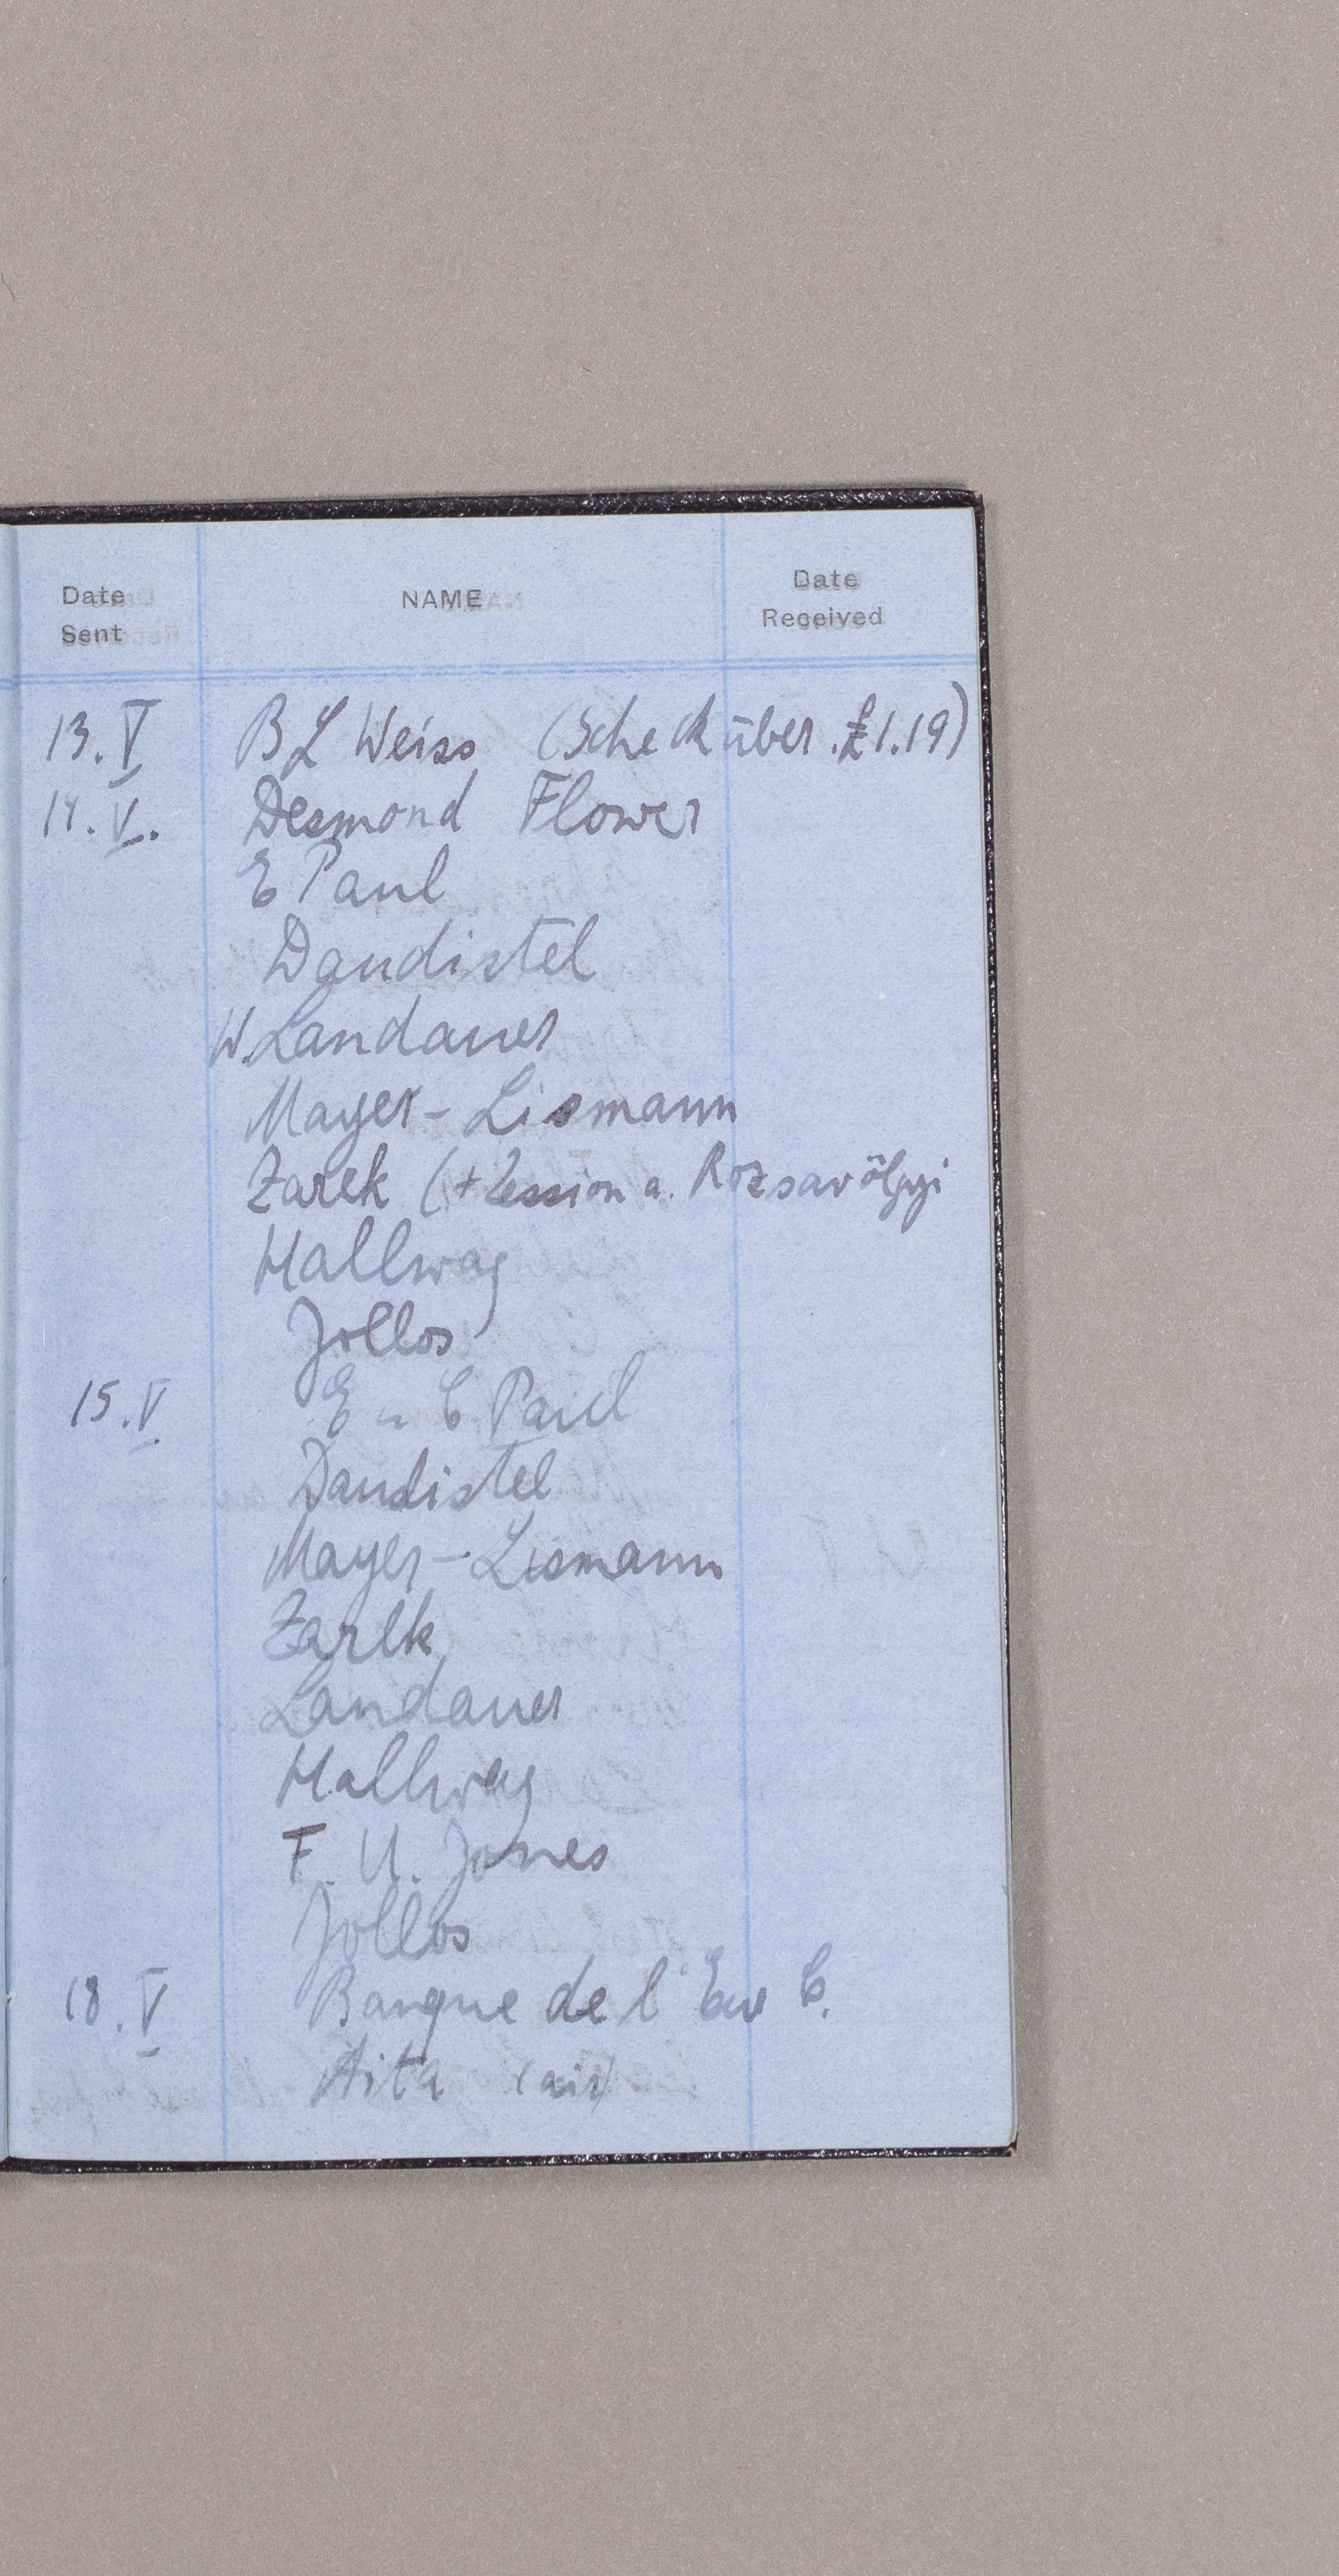 Date Sent NAME Date Received
13.V BL Weiss (Scheck über £1.19)
14.V. Desmond Flower
E Paul
Daudistel
W. Landauer
Mayer-Lismann
Zarek (+ Zession a. Rozsavölgyi
Hallwag
Jollos
15.V E u C Paul
Daudistel
Mayer-Lismann
Zarek
Landauer
Hallwag
F. U. Jones
Jollos
18.V Banque de l' C.
Aita (air)